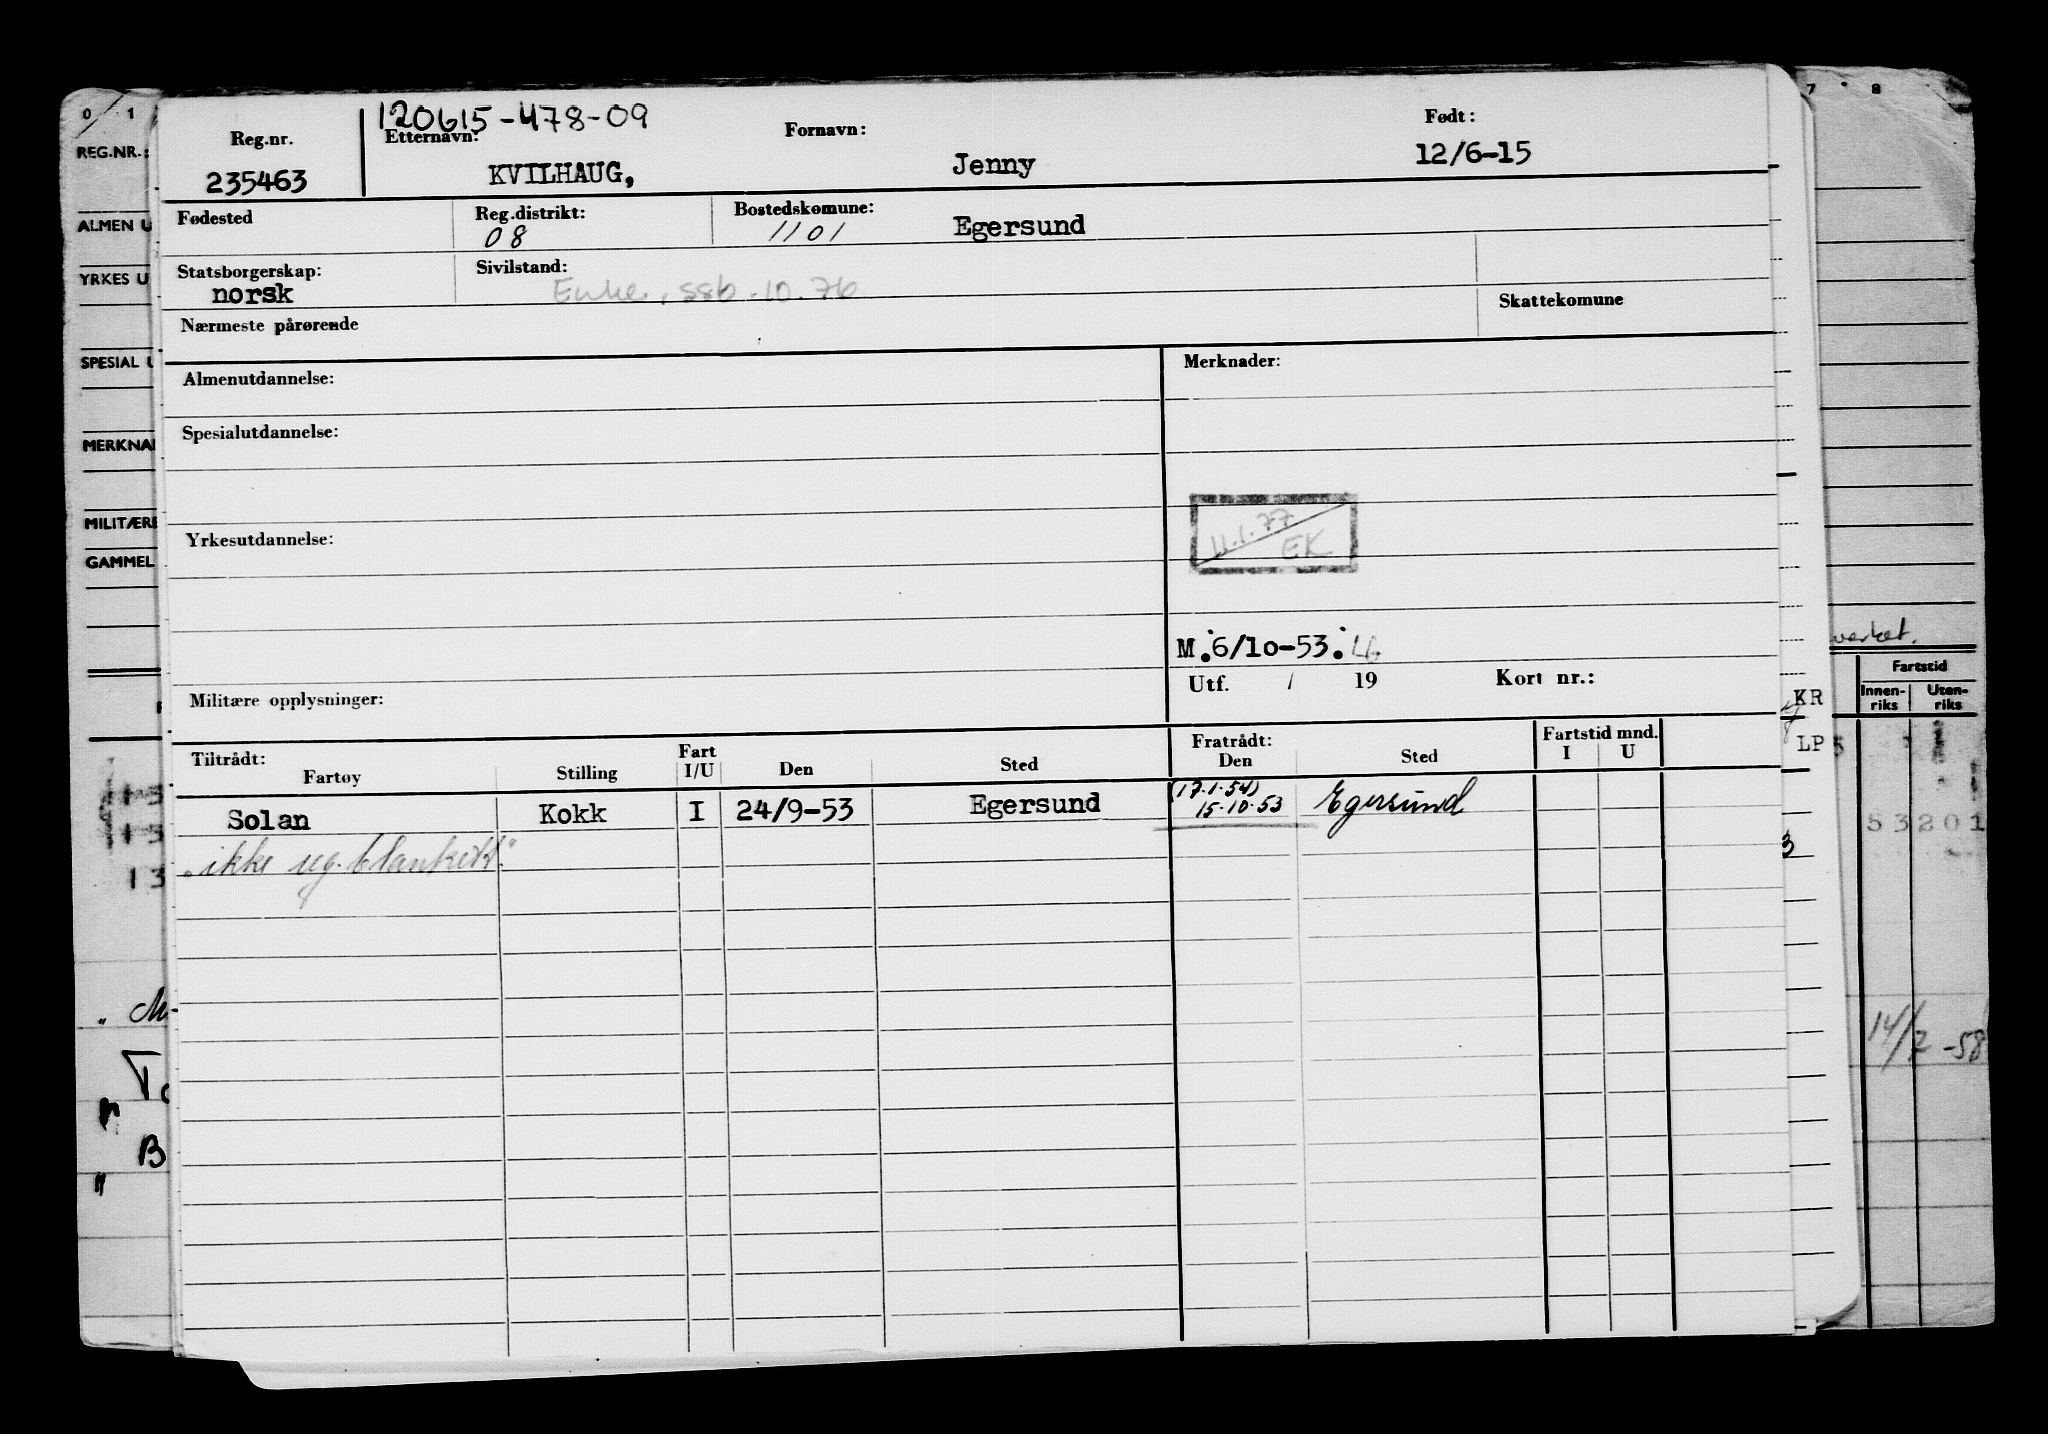 0 1 7 8
REG.NR.:
ALMEN U
YRKES U
SPESIAL U
MERKNA
MILITÆRE
GAMMEL
120615-478-09
Reg.nr. Etternavn: Fornavn: Født:
235463 KVILHAUG, Jenny 12/6-15
Fødested Reg.distrikt: Bostedskomune:
08 1101 Egersund
Statsborgerskap: Sivilstand:
norsk Enke, ssb. 10.76
Nærmeste pårørende Skattekomune
Almenutdannelse: Merknader:
Spesialutdannelse:
11.1.77
EK
Yrkesutdannelse:
M.6/10-53. LG
Utf. / 19 Kort nr.:
Militære opplysninger:
Tiltrådt: Fart Fratrådt: Fartstid mnd.
Fartøy Stilling I/U Den Sted Den Sted I U
(17.1.54)
Solan Kokk I 24/9-53 Egersund 15.10.53 Egersund
"ikke reg. blankett."
verket.
Fartstid
Innen-riks Uten-riks
KR
LP
53201
3
13
14/2-58